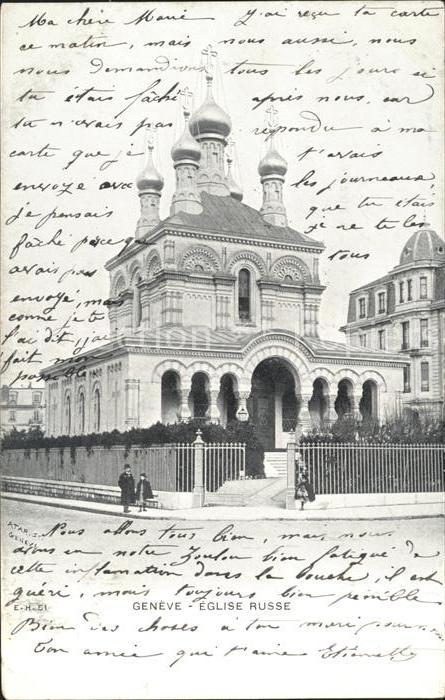 Ma chère Marie J'ai reçu ta carte
ce matin, mais nous aussi, nous
nous demandions tous les jours si
tu étais fâché après nous, car
tu n'avais pas répondu à ma
carte que je t'avais
envoyé avec les journeaux,
je pensais que tu étais
fâché parceque je ne te les
avais pas tous
envoyé, mais
comme je te
l'ai dit, j'ai
fait mon
possible
ATAR S.A.
GENÈVE
Nous allons tous bien, mais nous
avons eu notre Loulou bien fatigué de
cette inflamation dans la bouche, il est
guéri, mais toujours bien pénible
E.-H. 51 GENÈVE - ÉGLISE RUSSE
Bien des choses à ton mari pour
Ton amie qui t'aime Etiennette